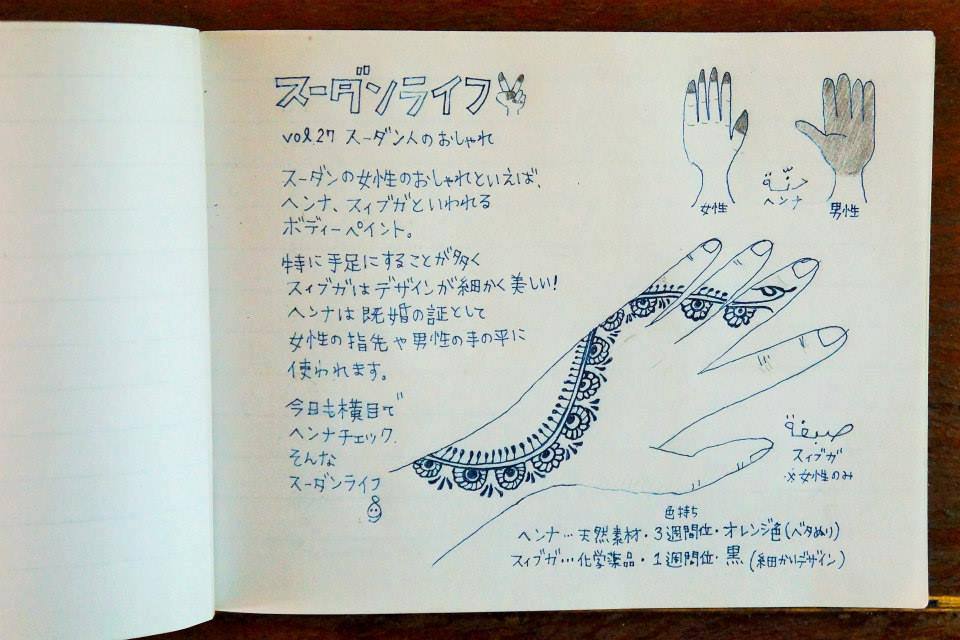 スーダンライフ
vol.27 スーダン人のおしゃれ
スーダンの女性のおしゃれといえば、
ヘンナ、スィブガといわれる
ボディーペイント。
特に手足にすることが多く
スィブガはデザインが細かく美しい!
ヘンナは既婚の証として
女性の指先や男性の手の平に
使われます。
今日も横目で
ヘンナチェック.
そんな
スーダンライフ
女性
حنّة
ヘンナ
男性
صبغة
スィブガ
※女性のみ
色持ち
ヘンナ…天然素材・3週間位・オレンジ色(ベタぬり)
スィブガ…化学薬品・1週間位・黒(細かいデザイン)